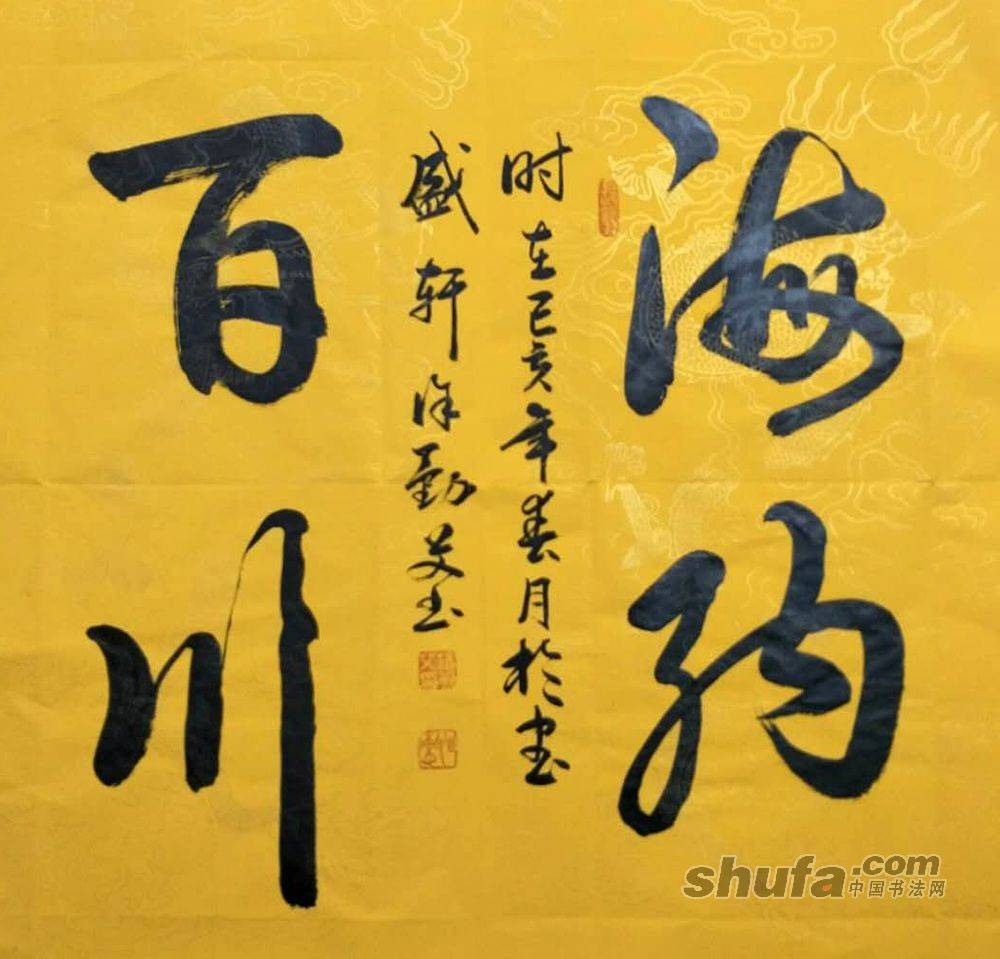 海纳
时在己亥年春月於书
盛轩徐勤书
百川
shufa.com
中国书法网